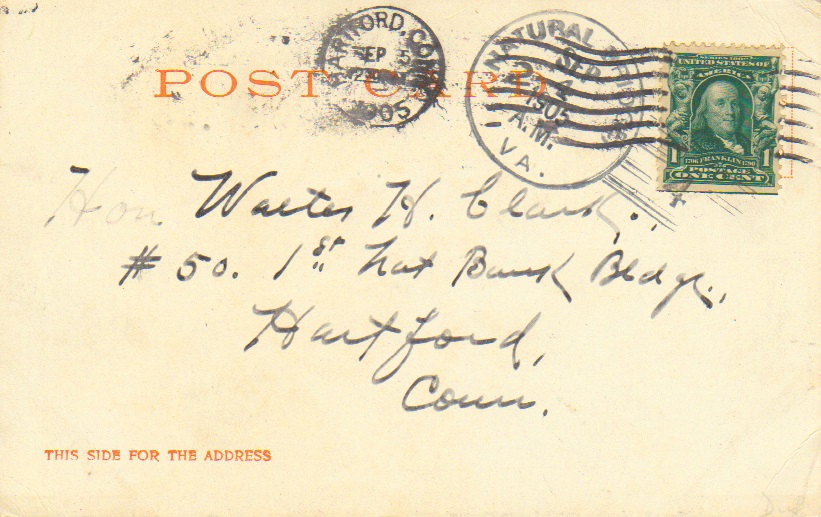 POST CARD
HARTFORD, CONN.
SEP 5
1905
NATURAL BRIDGE
SEP
4
1905
A.M.
VA.
SERIES 1902
UNITED STATES OF
AMERICA
1706 FRANKLIN 1790
1 POSTAGE 1
ONE CENT
4
Hon Walter H. Clark,
#50. 1st Nat Bank Bldg.,
Hartford,
Conn.
THIS SIDE FOR THE ADDRESS